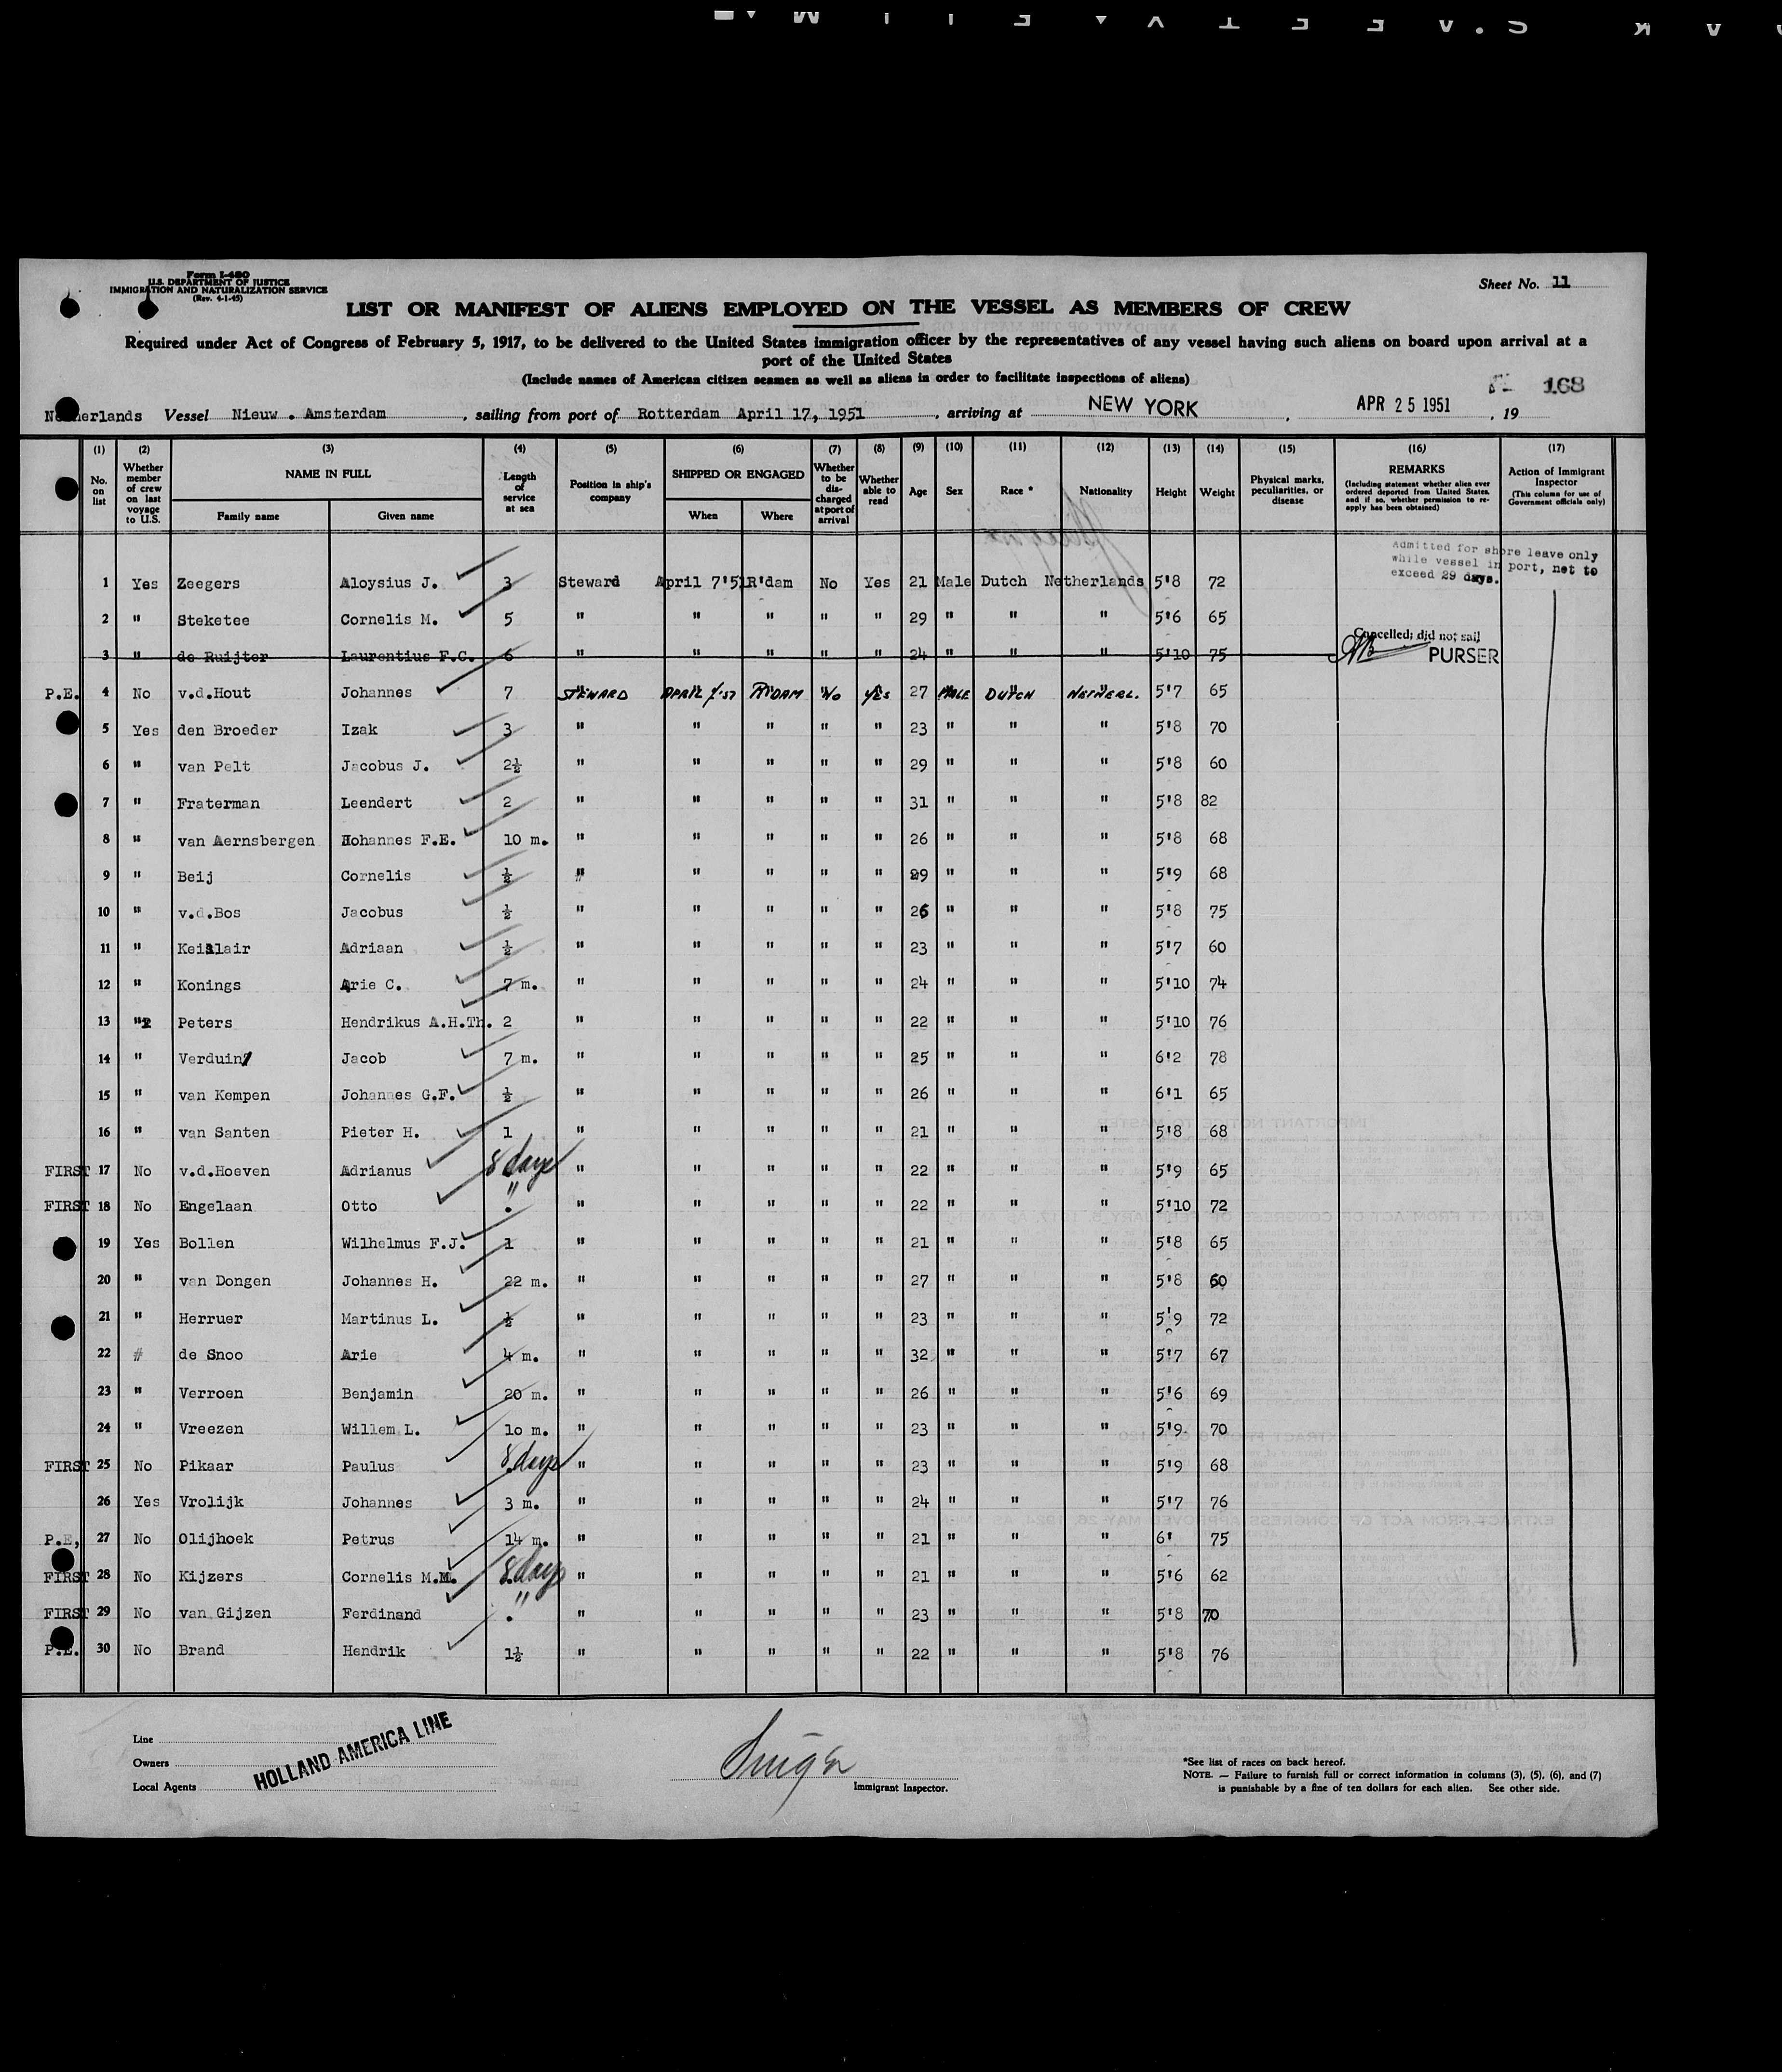 Form I-480
U.S. DEPARTMENT OF JUSTICE
IMMIGRATION AND NATURALIZATION SERVICE
(Rev. 4-1-45)
Sheet No. 11
LIST OR MANIFEST OF ALIENS EMPLOYED ON THE VESSEL AS MEMBERS OF CREW
Required under Act of Congress of February 5, 1917, to be delivered to the United States immigration officer by the representatives of any vessel having such aliens on board upon arrival at a
port of the United States
(Include names of American citizen seamen as well as aliens in order to facilitate inspections of aliens)
168
Netherlands Vessel Nieuw . Amsterdam , sailing from port of Rotterdam April 17, 1951 , arriving at NEW YORK , APR 25 1951 , 19
(1) (2) (3) (4) (5) (6) (7) (8) (9) (10) (11) (12) (13) (14) (15) (16) (17)
No. on list Whether member of crew on last voyage to U.S. NAME IN FULL Family name Given name Length of service at sea Position in ship's company SHIPPED OR ENGAGED When Where Whether to be discharged at port of arrival Whether able to read Age Sex Race * Nationality Height Weight Physical marks, peculiarities, or disease REMARKS (Including statement whether alien ever ordered deported from United States, and if so, whether permission to re-apply has been obtained) Action of Immigrant Inspector (This column for use of Government officials only)
Admitted for shore leave only
while vessel in port, not to
exceed 29 days.
1 Yes Zeegers Aloysius J. 3 Steward April 7'51 R'dam No Yes 21 Male Dutch Netherlands 5'8 72
2 " Steketee Cornelis M. 5 " " " " " 29 " " " 5'6 65
3 " de Ruijter Laurentius F.C. 6 " " " " " 24 " " " 5'10 75 Cancelled; did not sail PURSER
P.E. 4 No v.d.Hout Johannes 7 STEWARD APRIL 7'51 R'DAM NO YES 27 MALE DUTCH NETHERL. 5'7 65
5 Yes den Broeder Izak 3 " " " " " 23 " " " 5'8 70
6 " van Pelt Jacobus J. 2½ " " " " " 29 " " " 5'8 60
7 " Fraterman Leendert 2 " " " " " 31 " " " 5'8 82
8 " van Aernsbergen Hohannes F.E. 10 m. " " " " " 26 " " " 5'8 68
9 " Beij Cornelis ½ " " " " " 29 " " " 5'9 68
10 " v.d.Bos Jacobus ½ " " " " " 26 " " " 5'8 75
11 " Keislair Adriaan ½ " " " " " 23 " " " 5'7 60
12 " Konings Arie C. 7 m. " " " " " 24 " " " 5'10 74
13 " Peters Hendrikus A.H.Th. 2 " " " " " 22 " " " 5'10 76
14 " Verduin Jacob 7 m. " " " " " 25 " " " 6'2 78
15 " van Kempen Johannes G.F. ½ " " " " " 26 " " " 6'1 65
16 " van Santen Pieter H. 1 " " " " " 21 " " " 5'8 68
FIRST 17 No v.d.Hoeven Adrianus 8 days " " " " " 22 " " " 5'9 65
FIRST 18 No Engelaan Otto " " " " " " 22 " " " 5'10 72
19 Yes Bollen Wilhelmus F.J. 1 " " " " " 21 " " " 5'8 65
20 " van Dongen Johannes H. 22 m. " " " " " 27 " " " 5'8 60
21 " Herruer Martinus L. ½ " " " " " 23 " " " 5'9 72
22 " de Snoo Arie 4 m. " " " " " 32 " " " 5'7 67
23 " Verroen Benjamin 20 m. " " " " " 26 " " " 5'6 69
24 " Vreezen Willem L. 10 m. " " " " " 23 " " " 5'9 70
FIRST 25 No Pikaar Paulus 8 days " " " " " 23 " " " 5'9 68
26 Yes Vrolijk Johannes 3 m. " " " " " 24 " " " 5'7 76
P.E, 27 No Olijhoek Petrus 14 m. " " " " " 21 " " " 6' 75
FIRST 28 No Kijzers Cornelis M.M. 8 days " " " " " 21 " " " 5'6 62
FIRST 29 No van Gijzen Ferdinand " " " " " " 23 " " " 5'8 70
P.E. 30 No Brand Hendrik 1½ " " " " " 22 " " " 5'8 76
Line
Owners
Local Agents
HOLLAND AMERICA LINE
Immigrant Inspector.
*See list of races on back hereof.
NOTE. — Failure to furnish full or correct information in columns (3), (5), (6), and (7)
is punishable by a fine of ten dollars for each alien. See other side.